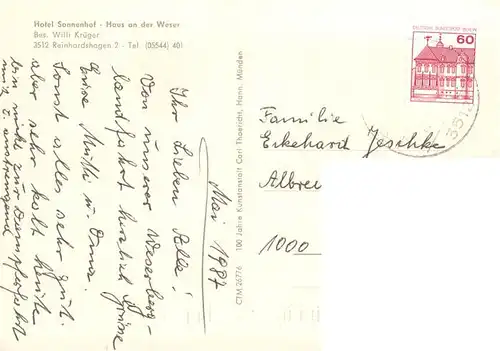 Hotel Sonnenhof - Haus an der Weser
Bes. Willi Krüger
3512 Reinhardshagen 2 - Tel (05544) 401
Mai 1987
Ihr Lieben Alle!
Von unserer Weserberg-
landfahrt herzlich Grüsse
Mutti u. Oma.
Sonst alles sehr gut.
aber sehr kalt heute
bin nicht zur Dampferfahrt
mit z. anstrengend
100 Jahre Kunstanstalt Carl Thoericht, Hann. Münden
CTM 26776
DEUTSCHE BUNDESPOST BERLIN
60
3512
Familie
Eckehard Jeschke
Albre
1000